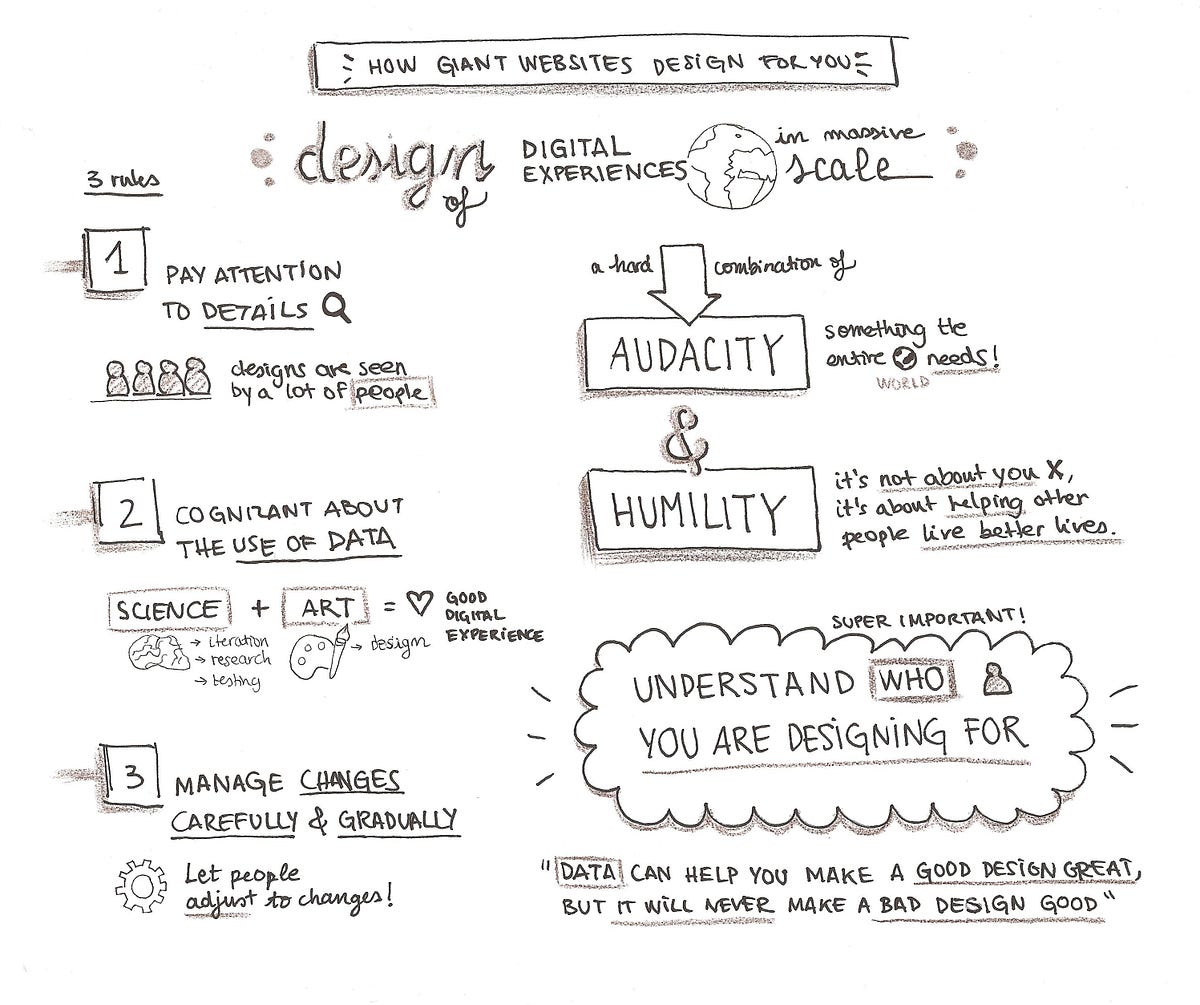 HOW GIANT WEBSITES DESIGN FOR YOU
design of
DIGITAL
EXPERIENCES
in massive
scale
3 rules
1
PAY ATTENTION
TO DETAILS
designs are seen
by a lot of people
2
COGNIZANT ABOUT
THE USE OF DATA
SCIENCE + ART = GOOD
DIGITAL
EXPERIENCE
→ iteration
→ research
→ testing
→ design
3
MANAGE CHANGES
CAREFULLY & GRADUALLY
Let people
adjust to changes!
a hard combination of
AUDACITY
something the
entire needs!
WORLD
&
HUMILITY
it's not about you X,
it's about helping other
people live better lives.
SUPER IMPORTANT!
UNDERSTAND WHO
YOU ARE DESIGNING FOR
"DATA CAN HELP YOU MAKE A GOOD DESIGN GREAT,
BUT IT WILL NEVER MAKE A BAD DESIGN GOOD"